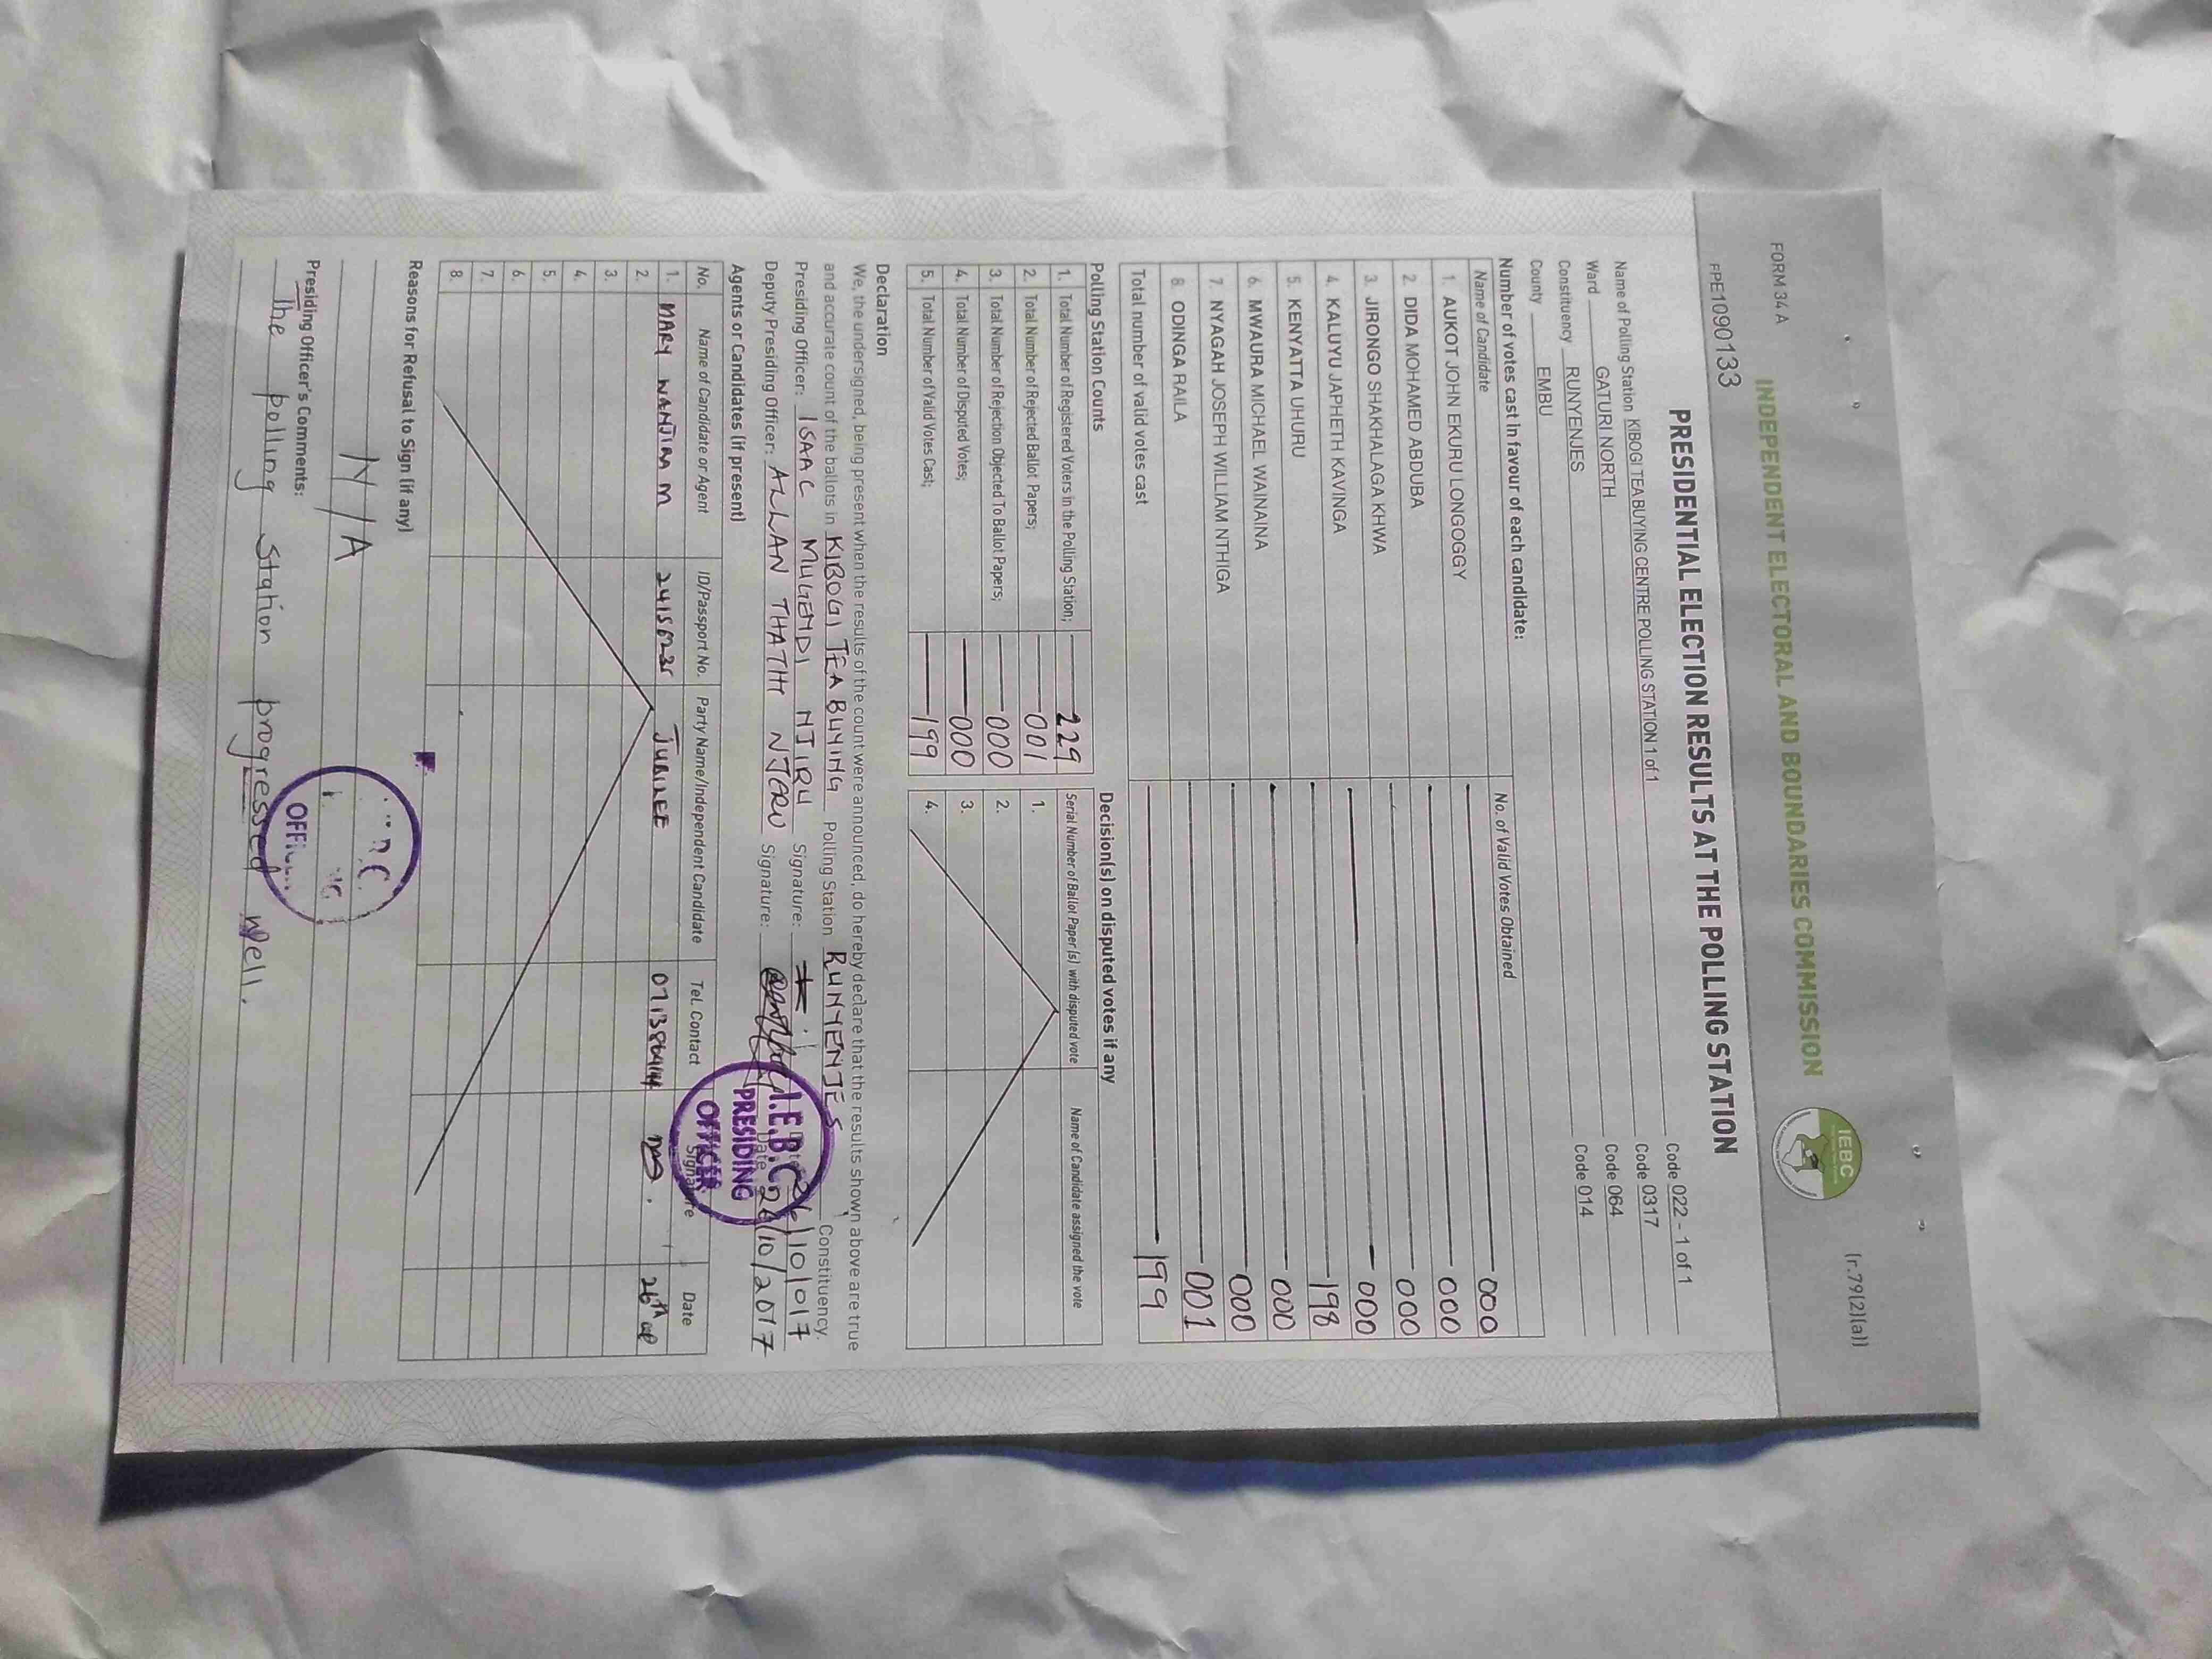 FORM 34A
(r.79(2)(a))
INDEPENDENT ELECTORAL AND BOUNDARIES COMMISSION
IEBC
PPE1090133
PRESIDENTIAL ELECTION RESULTS AT THE POLLING STATION
Name of Polling Station KIBOGI TEA BUYING CENTRE POLLING STATION 1 of 1 Code 022 - 1 of 1
Ward GATURI NORTH Code 0317
Constituency RUNYENJES Code 064
County EMBU Code 014
Number of votes cast in favour of each candidate:
Name of Candidate No. of Valid Votes Obtained
1. AUKOT JOHN EKURU LONGOGGY 000
2. DIDA MOHAMED ABDUBA 000
3. JIRONGO SHAKHALAGA KHWA 000
4. KALUYU JAPHETH KAVINGA 000
5. KENYATTA UHURU 198
6. MWAURA MICHAEL WAINAINA 000
7. NYAGAH JOSEPH WILLIAM NTHIGA 000
8. ODINGA RAILA 001
Total number of valid votes cast 199
Polling Station Counts
1. Total Number of Registered Voters in the Polling Station; 229
2. Total Number of Rejected Ballot Papers; 001
3. Total Number of Rejection Objected To Ballot Papers; 000
4. Total Number of Disputed Votes; 000
5. Total Number of Valid Votes Cast; 199
Decision(s) on disputed votes if any
Serial Number of Ballot Paper(s) with disputed vote Name of Candidate assigned the vote
1.
2.
3.
4.
Declaration
We, the undersigned, being present when the results of the count were announced, do hereby declare that the results shown above are true
and accurate count of the ballots in KIBOGI TEA BUYING Polling Station RUNYENJES Constituency.
Presiding Officer: ISAAC MUGENDI NJIRU Signature: Date 26/10/017
Deputy Presiding Officer: ALLAN THATHI NJERU Signature: Date 26/10/2017
I.E.B.C.
PRESIDING
OFFICER
Agents or Candidates (if present)
No. Name of Candidate or Agent ID/Passport No. Party Name/Independent Candidate Tel. Contact Signature Date
1. MARY WANJIRA M JUBILEE 26th
2.
3.
4.
5.
6.
7.
8.
Reasons for Refusal to Sign (if any)
N/A
Presiding Officer's Comments:
The polling station progressed well.